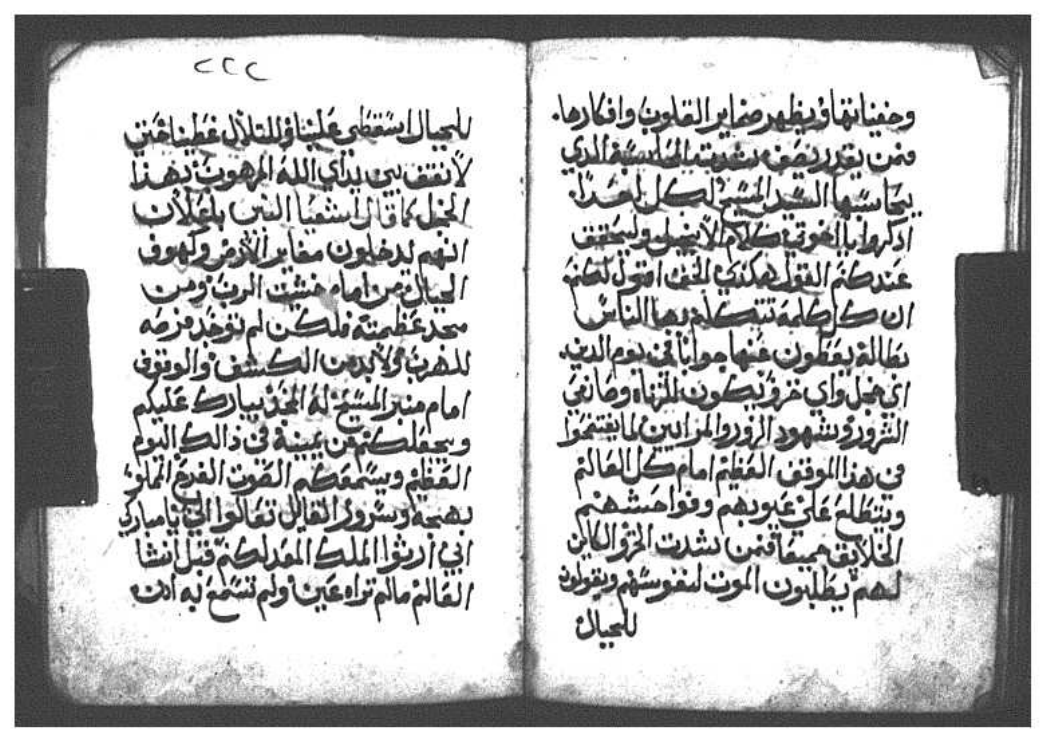 وخفياتها ويظهر ضماير القلوب وافكارها.
فمن يقدر يصف شدة المحاسبة الذي
يحاسبها السيد المسيح لكل احدًا.
اذكروا يا اخوتي كلام الانجيل وليتحقق
عندكم القول هكذي الحق اقول لكم
ان كل كلمة تتكلم بها الناس
بطالة يعطون عنها جوابا في يوم الدين.
اي خجل واي خزو يكون للزناة وصانعي
الشرور وشهود الزور والمرايين لما يفتضحوا
في هذا الموقف العظيم امام كل العالم
ويتطلع علي عيوبهم وفواحشهم
الخلايق جميعًا فمن شدت الخزو الكاين
لهم يطلبون الموت لنفوسهم ويقولون
للجبال
٢٢٢
للجبال اسقطي علينا وللتلال غطينا حتي
لا نقف بين يداي الله المرهوب بهذا
الخجل كما قال اشعيا النبي باعلان
انهم يدخلون مغاير الارض وكهوف
الجبال من امام خشيت الرب ومن
مجد عظمته فلكن لم توجد فرصه
للهرب ولابد من الكشف والوقوف
امام منبر المسيح له المجد يبارك عليكم
ويجعلكم عن يمينه في ذالك اليوم
العظيم ويسمعكم الصوت الفرح المملو
بهجه وسرور القايل تعالوا الي يا مباركي
ابي ارثوا الملك المعد لكم قبل انشا
العالم مالم تراه عين ولم تسمع به اذن.